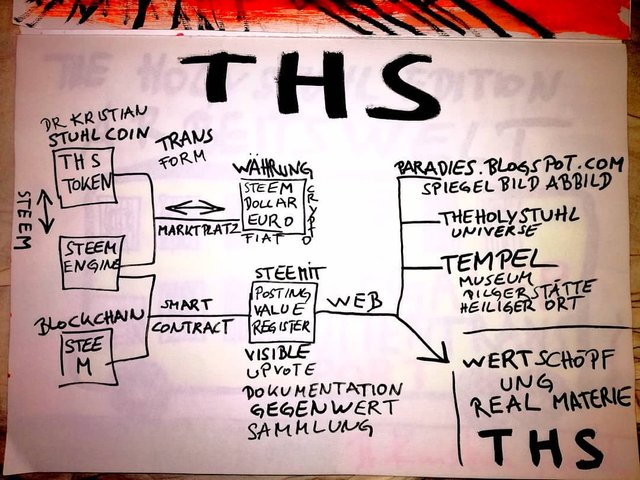 THS
DR KRISTIAN
STUHLCOIN
THS
TOKEN
STEEM
STEEM
ENGINE
BLOCKCHAIN
STEE
M
TRANS
FORM
MARKTPLATZ
WÄHRUNG
STEEM
DOLLAR
EURO
FIAT
CRYPTO
SMART
CONTRACT
STEEMIT
POSTING
VALUE
REGISTER
VISIBLE
UPVOTE
DOKUMENTATION
GEGENWERT
SAMMLUNG
WEB
PARADIES.BLOGSPOT.COM
SPIEGEL BILD ABBILD
THEHOLYSTUHL
UNIVERSE
TEMPEL
MUSEUM
PILGERSTÄTTE
HEILIGER ORT
WERTSCHÖPF
UNG
REAL MATERIE
THS